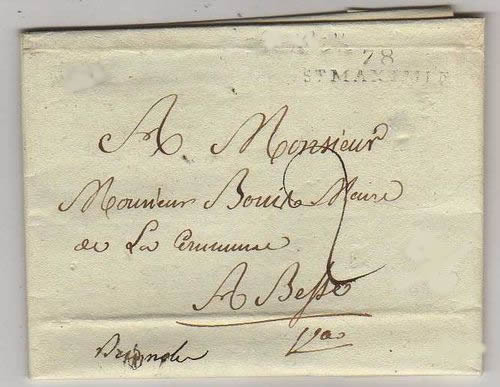 78
ST MAXIMIN
A Monsieur
Monsieur Bouis Maire
de La Commune
2
A Besse
Var
Brignole